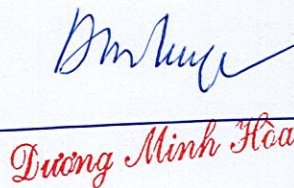 Dương Minh Hòa